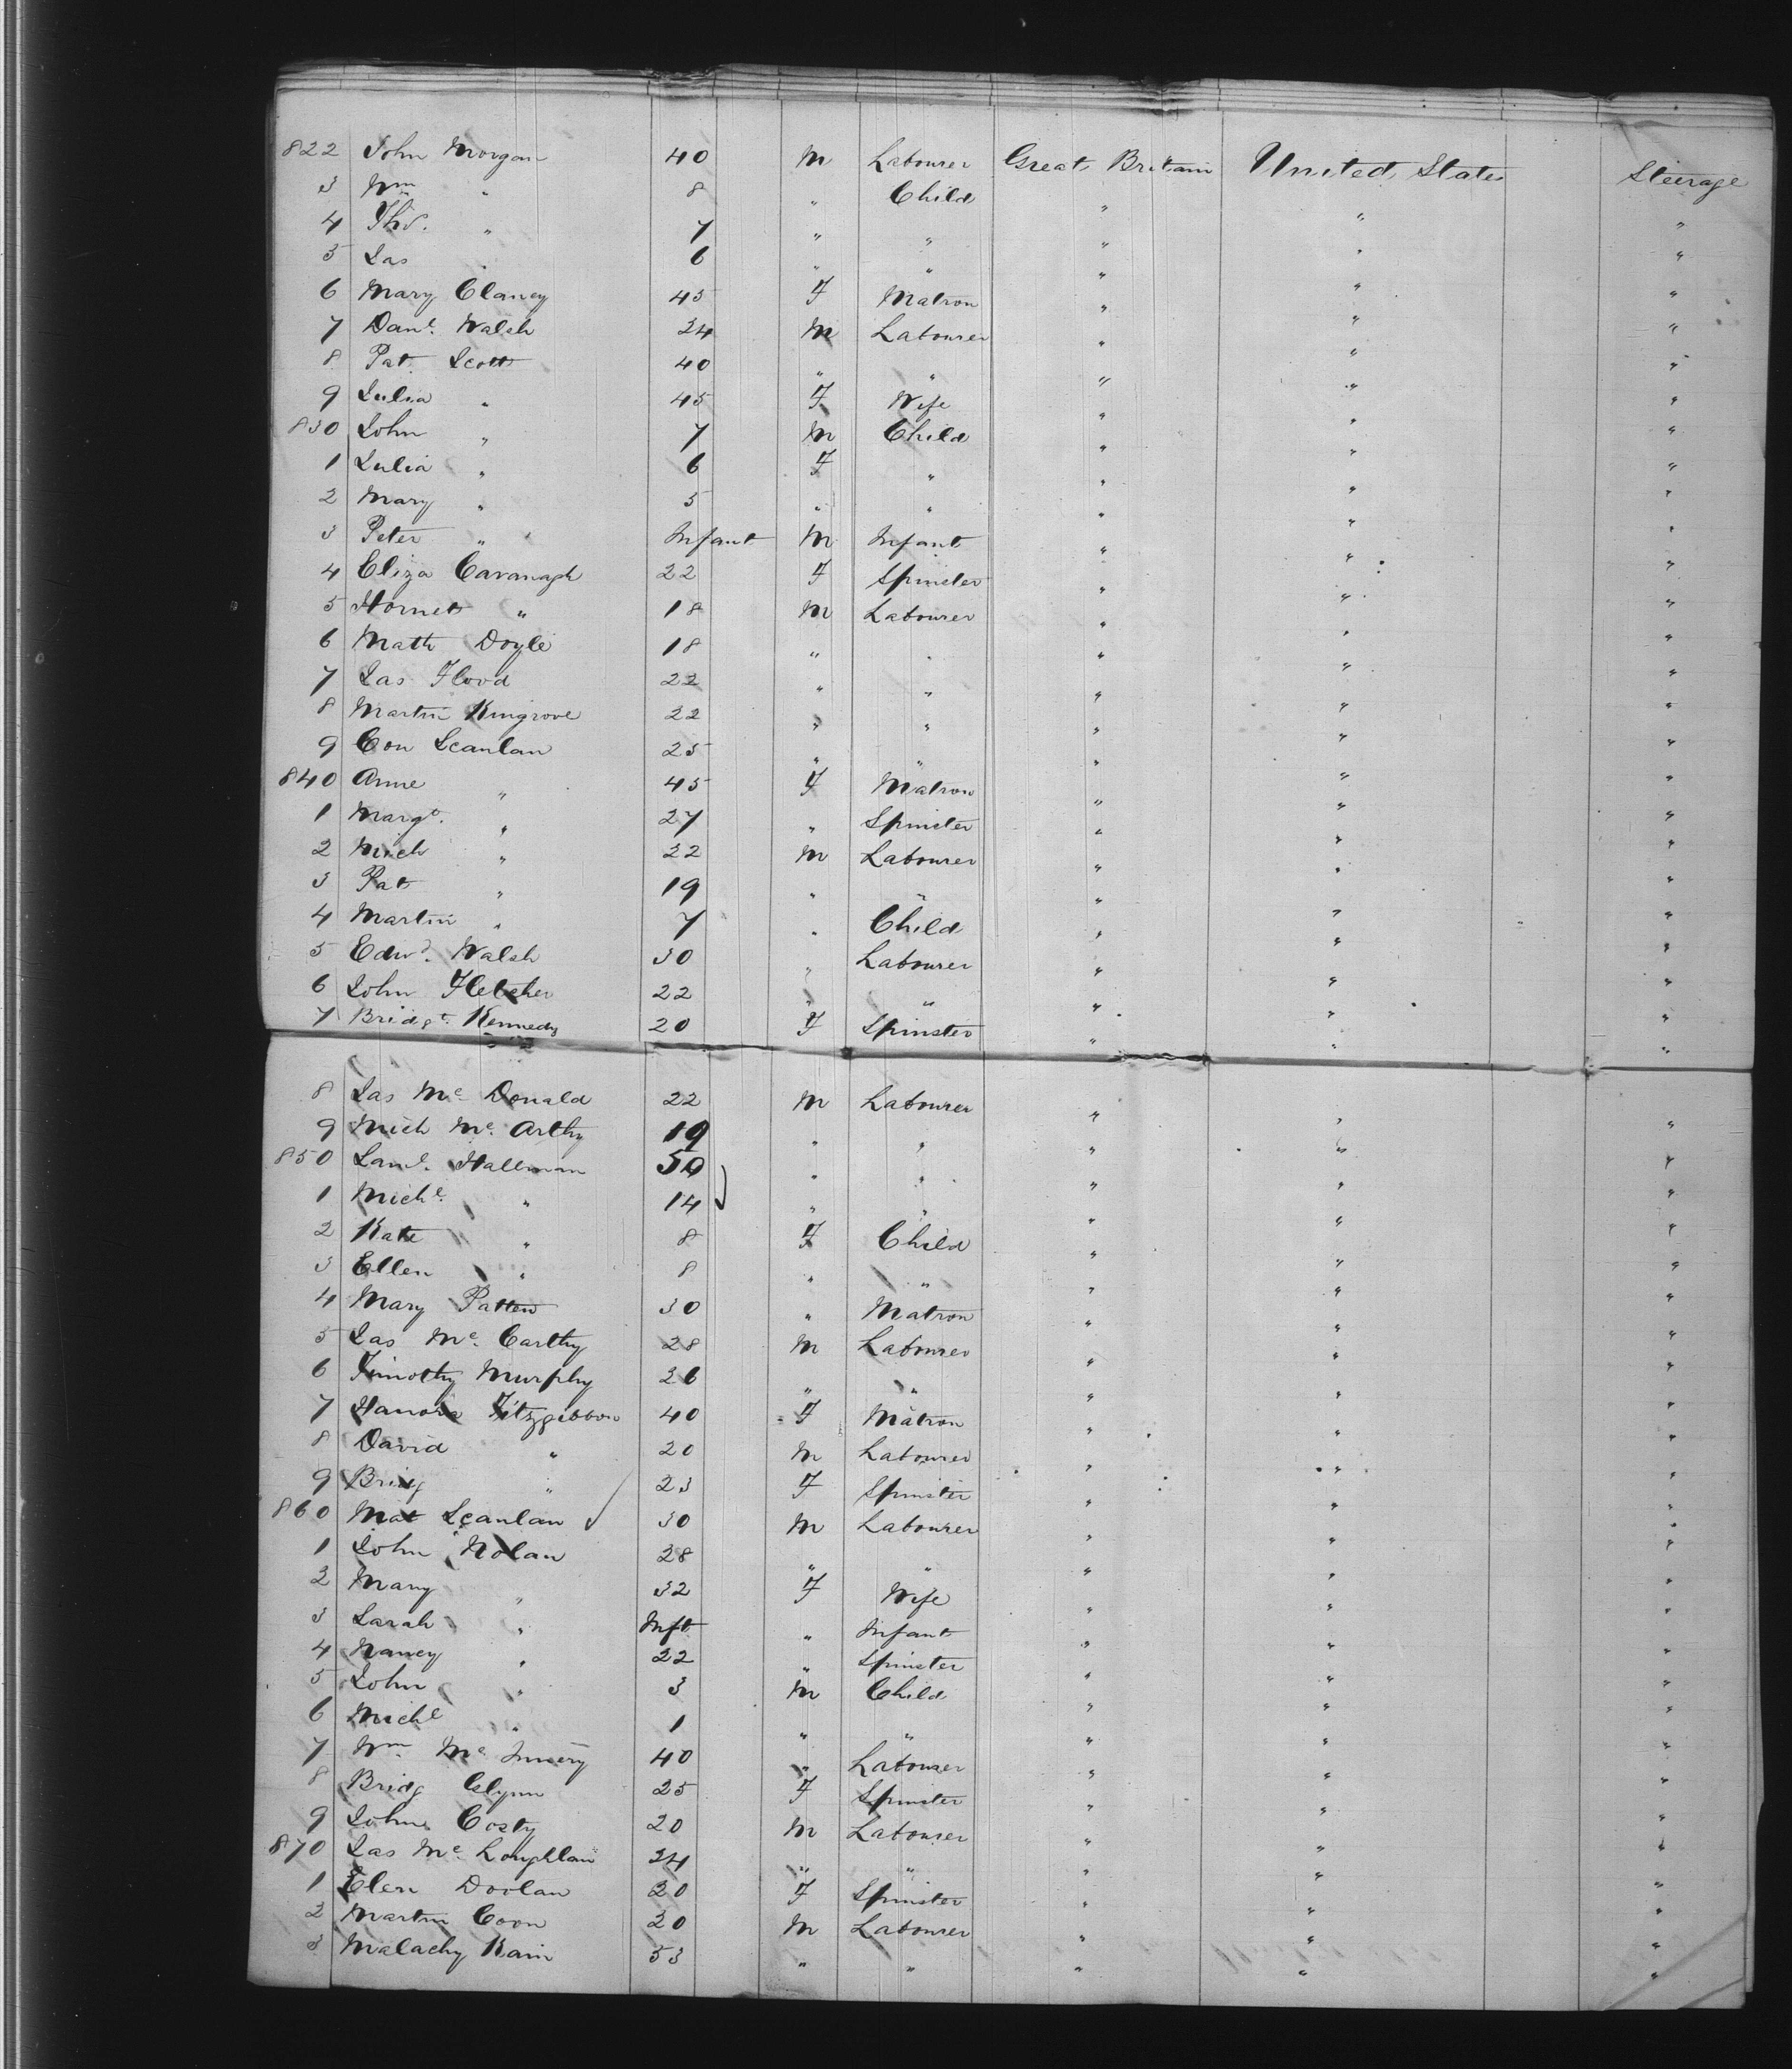 822 John Morgan 40 M Labourer Great Britain United States Steerage
3 Wm " 8 " Child " " "
4 Thos. " 7 " " " " "
5 Jas " 6 " " " " "
6 Mary Clancy 45 F Matron " " "
7 Danl. Walsh 24 M Labourer " " "
8 Pat. Scott 40 " " " " "
9 Julia " 45 F Wife " " "
830 John " 7 M Child " " "
1 Julia " 6 F " " " "
2 Mary " 5 " " " " "
3 Peter " Infant M Infant " " "
4 Eliza Cavanagh 22 F Spinster " " "
5 " 18 M Labourer " " "
6 Math Doyle 18 " " " " "
7 Jas Flood 22 " " " " "
8 Martin Kingrove 22 " " " " "
9 Con Scanlan 25 " " " " "
840 Anne " 45 F Matron " " "
1 Margt. " 27 " Spinster " " "
2 Mich " 22 M Labourer " " "
3 Pat " 19 " " " " "
4 Martin " 7 " Child " " "
5 Edwd. Walsh 30 " Labourer " " "
6 John Fletcher 22 " " " " "
7 Bridgt. Kennedy 20 F Spinster " " "
8 Jas Mc Donald 22 M Labourer " " "
9 Mich Mc. Arthy 19 " " " " "
850 Saml. Hallman 50 " " " " "
1 Michl. " 14 " " " " "
2 Kate " 8 F Child " " "
3 Ellen " 8 " " " " "
4 Mary Patten 30 " Matron " " "
5 Jas Mc. Carthy 28 M Labourer " " "
6 Timothy Murphy 26 " " " " "
7 Hanora Fitzgibbon 40 F Matron " " "
8 David " 20 M Labourer " " "
9 Bridg " 23 F Spinster " " "
860 Mat Scanlan 30 M Labourer " " "
1 John Nolan 28 " " " " "
2 Mary " 32 F Wife " " "
3 Sarah " Inft " Infant " " "
4 Nancy " 22 " Spinster " " "
5 John " 3 M Child " " "
6 Michl " 1 " " " " "
7 Wm. Mc 40 " Labourer " " "
8 Bridg Glynn 25 F Spinster " " "
9 John Costy 20 M Labourer " " "
870 Jas Mc. Loughlan 24 " " " " "
1 Elen Doolan 20 F Spinster " " "
2 Martin Coon 20 M Labourer " " "
3 Malachy Kain 53 " " " " "